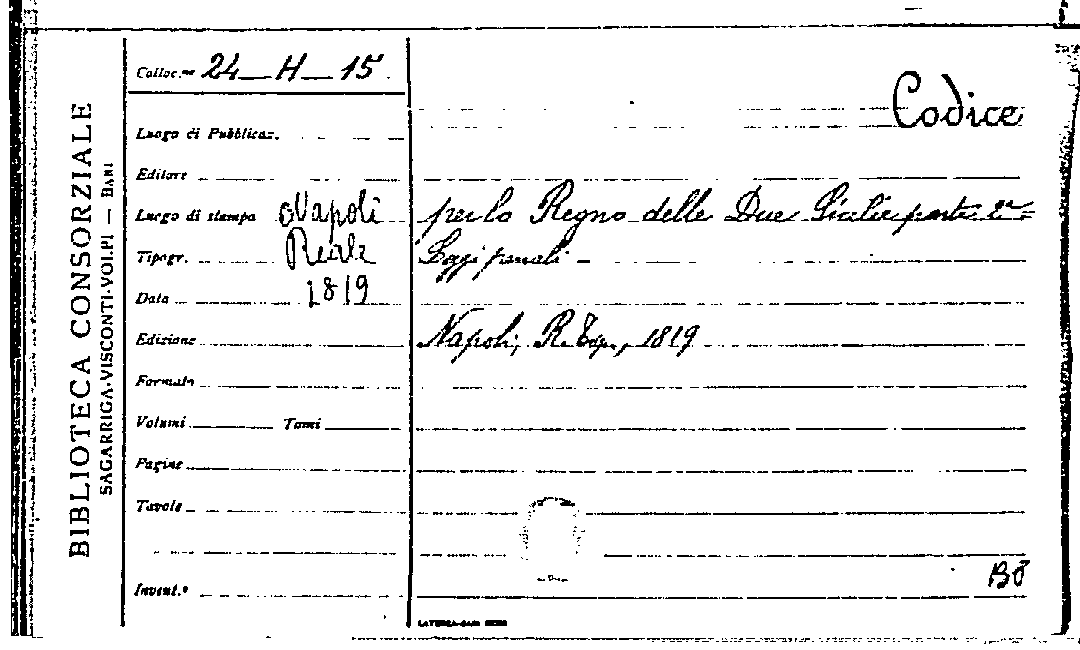 BIBLIOTECA CONSORZIALE
SAGARRIGA-VISCONTI-VOLPI — BARI
Colloc.ne 24 — H — 15
Luogo di Pubblicaz.
Editore
Luogo di stampa Napoli
Tipogr. Reale
Data 1819
Edizione
Formato
Volumi Tomi
Pagine
Tavole
Invent.º
Codice
per lo Regno delle Due Sicilie parte 2ª=
Leggi penali –
Napoli, R. Tip., 1819
LATERZA-BARI